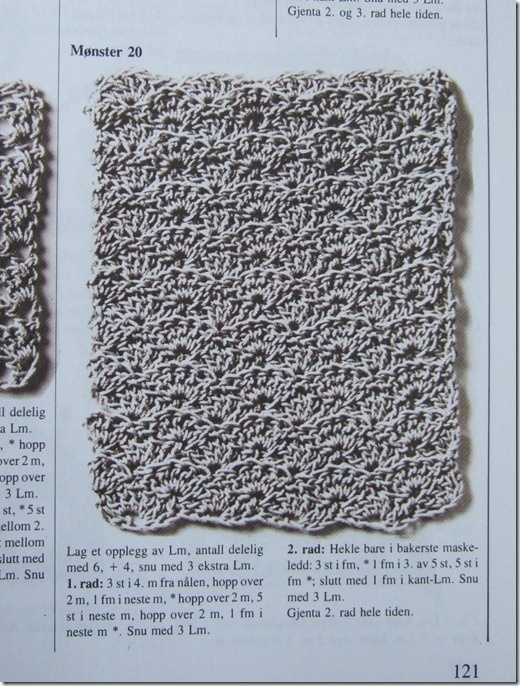 Gjenta 2. og 3. rad hele tiden.
Mønster 20
ll delelig
a Lm.
, * hopp
over 2 m,
opp over
3 Lm.
st, * 5 st
ellom 2.
mellom
slutt med
Lm. Snu
Lag et opplegg av Lm, antall delelig
med 6, + 4, snu med 3 ekstra Lm.
1. rad: 3 st i 4. m fra nålen, hopp over
2 m, 1 fm i neste m, * hopp over 2 m, 5
st i neste m, hopp over 2 m, 1 fm i
neste m *. Snu med 3 Lm.
2. rad: Hekle bare i bakerste maske-
ledd: 3 st i fm, * 1 fm i 3. av 5 st, 5 st i
fm *; slutt med 1 fm i kant-Lm. Snu
med 3 Lm.
Gjenta 2. rad hele tiden.
121